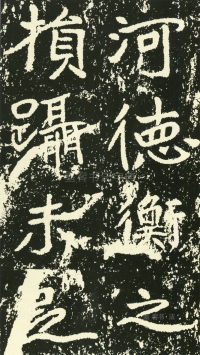 河德衡之
損躡未足